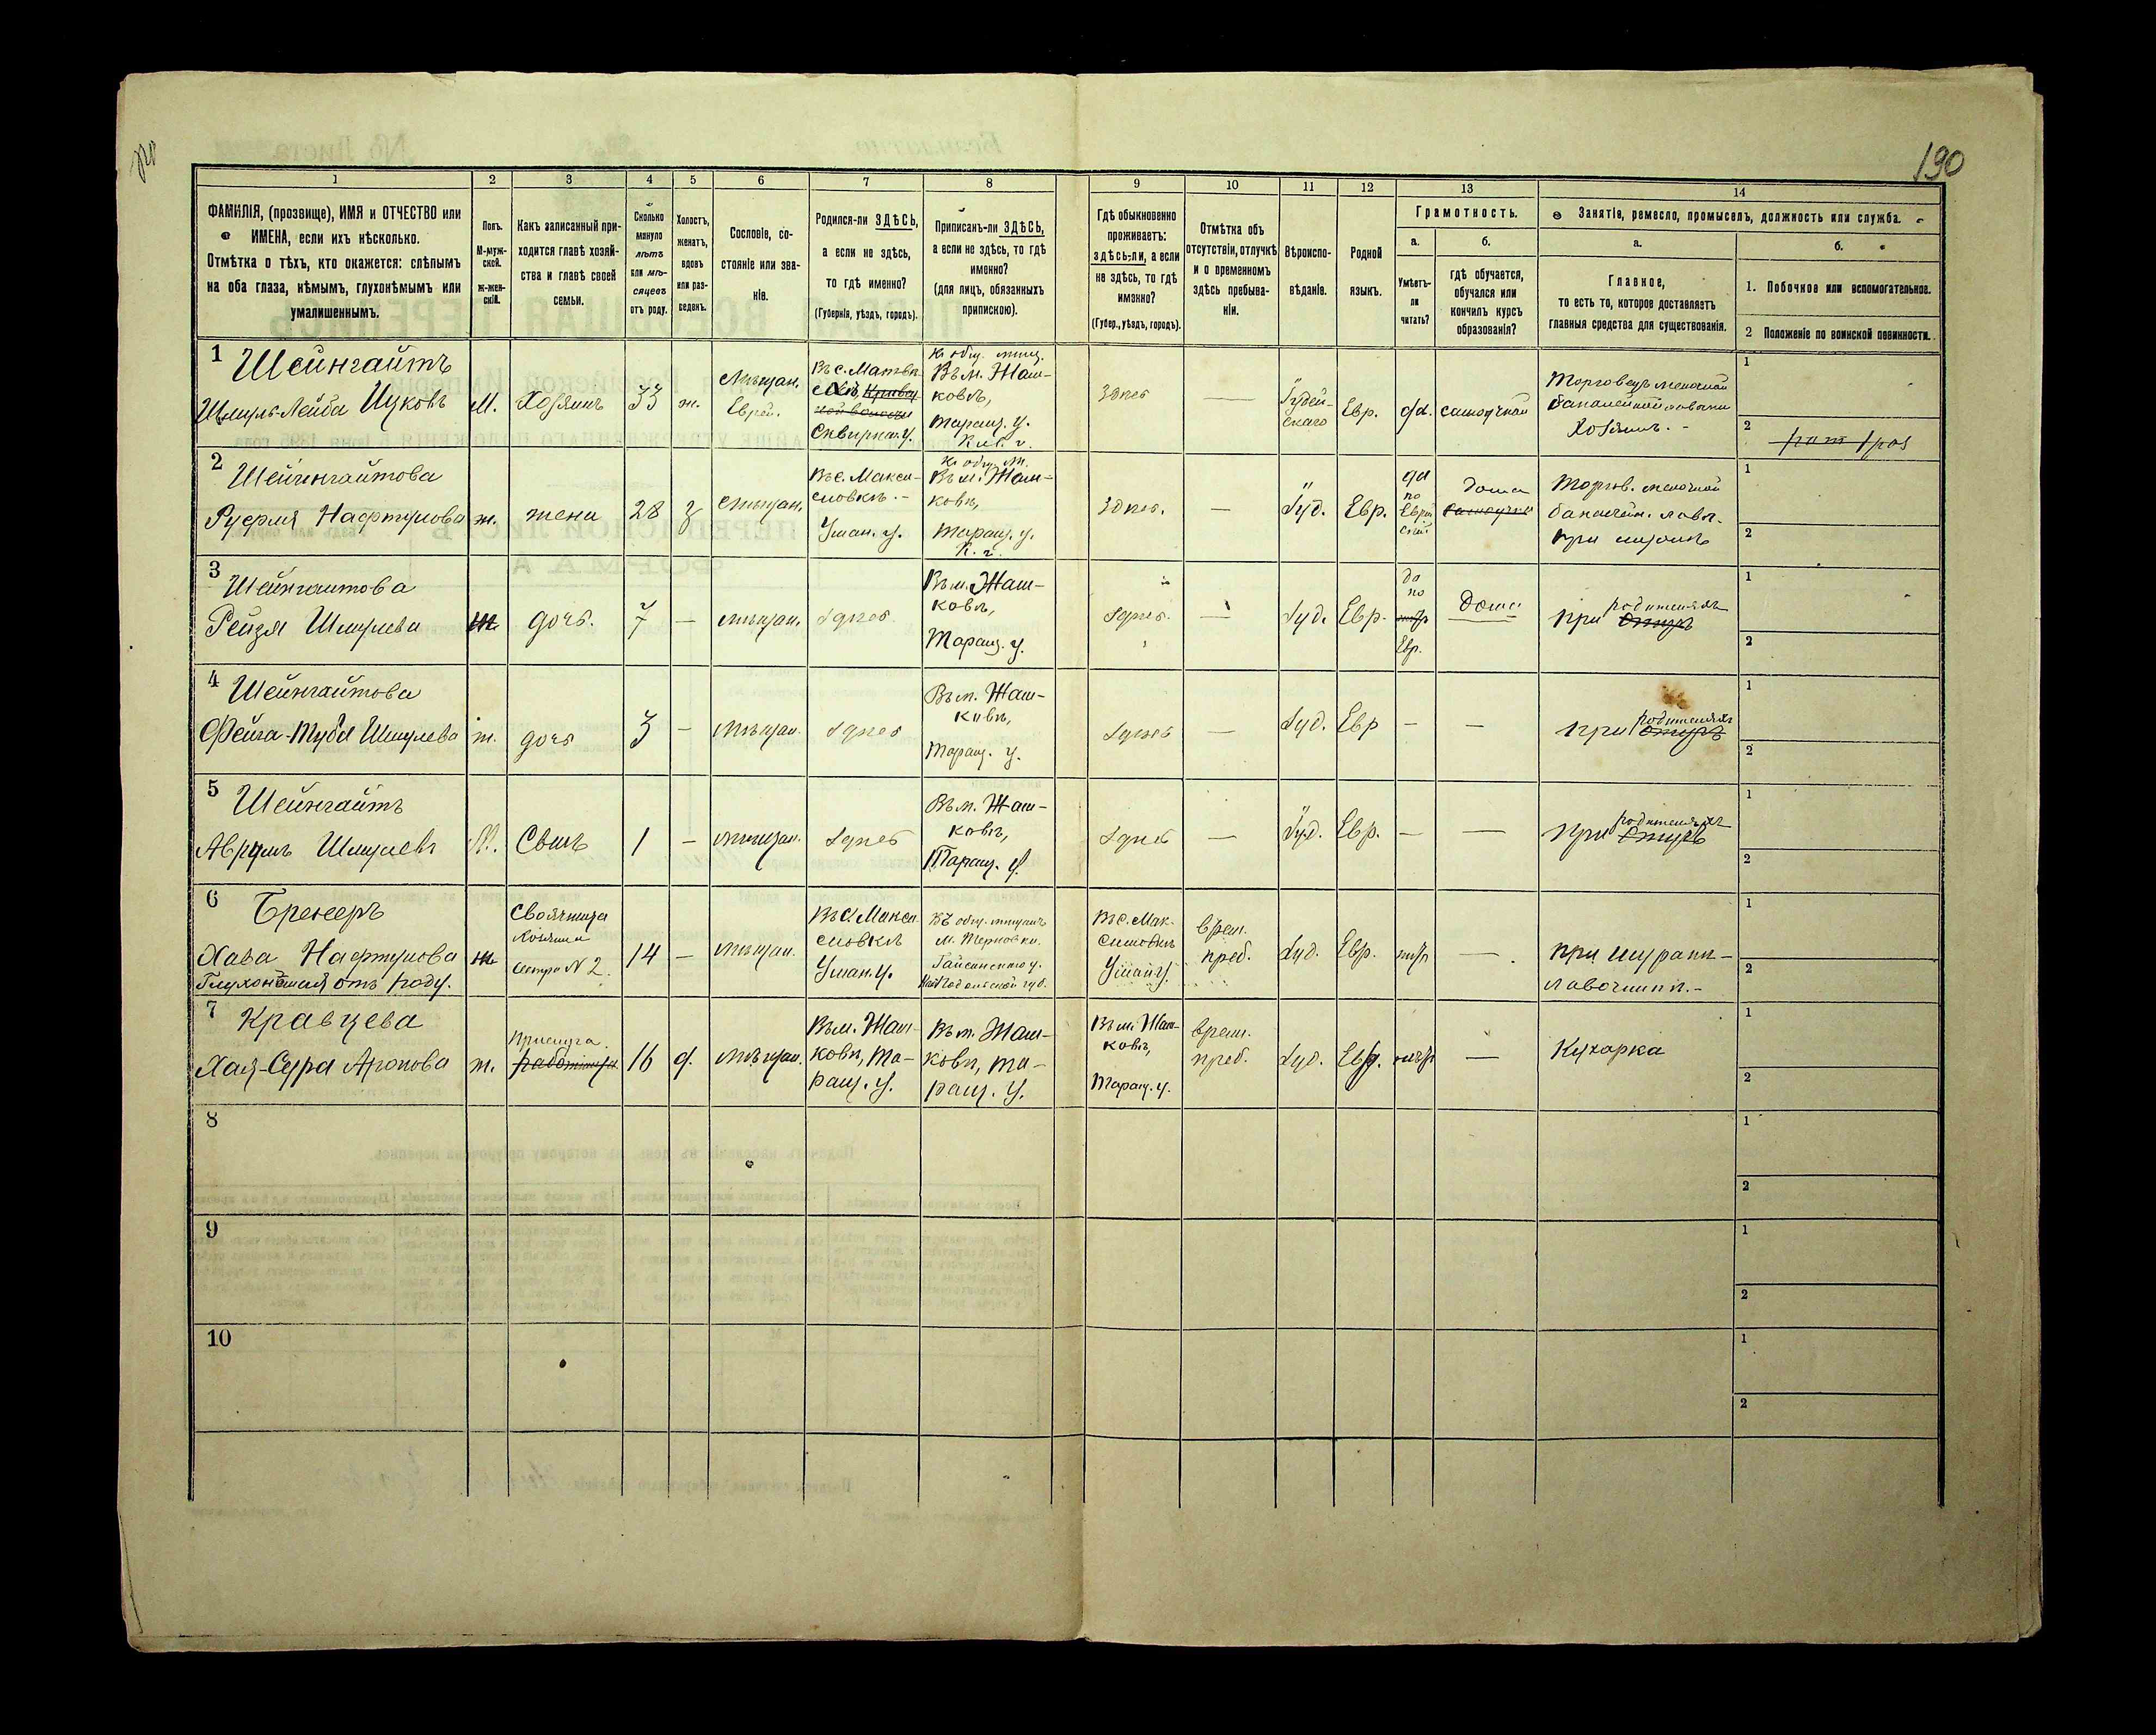 190
1 2 3 4 5 6 7 8 9 10 11 12 13 14
ФАМИЛІЯ, (прозвище), ИМЯ и ОТЧЕСТВО или
ИМЕНА, если ихъ нѣсколько.
Отмѣтка о тѣхъ, кто окажется: слѣпымъ
на оба глаза, нѣмымъ, глухонѣмымъ или
умалишеннымъ.
Полъ.
М-муж-
ской.
ж-жен-
скій.
Какъ записанный при-
ходится главѣ хозяй-
ства и главѣ своей
семьи.
Сколько
минуло
лѣтъ
или мѣ-
сяцевъ
отъ роду.
Холостъ,
женатъ,
вдовъ
или раз-
веденъ.
Сословіе, со-
стояніе или зва-
ніе.
Родился-ли ЗДѢСЬ,
а если не здѣсь,
то гдѣ именно?
(Губернія, уѣздъ, городъ).
Приписанъ-ли ЗДѢСЬ,
а если не здѣсь, то гдѣ
именно?
(для лицъ, обязанныхъ
припискою).
Гдѣ обыкновенно
проживаетъ:
здѣсь-ли, а если
не здѣсь, то гдѣ
именно?
(Губер., уѣздъ, городъ).
Отмѣтка объ
отсутствіи, отлучкѣ
и о временномъ
здѣсь пребыва-
ніи.
Вѣроиспо-
вѣданіе.
Родной
языкъ.
Грамотность.
а.
Умѣетъ-
ли
читать?
б.
гдѣ обучается,
обучался или
кончилъ курсъ
образованія?
Занятіе, ремесло, промыселъ, должность или служба.
а.
Главное,
то есть то, которое доставляетъ
главныя средства для существованія.
б.
1. Побочное или вспомогательное.
2 Положеніе по воинской повинности.
1 Шейнгайтъ
Шмуль-Лейба Ицковъ
М.
Хозяинъ
33
ж.
Мѣщан.
Еврей.
Сквирск. у.
Въ м. Жаш-
ковѣ,
Таращ. у.
Кіев. г.
Здѣсь
—
Іудей-
скаго
Евр.
да.
самоучкой
Торговецъ мелочной
бакалейной лавки
Хозяинъ. -
1
2
2 Шейнгайтова
Рухля Нафтулова
ж.
жена
28
з
мѣщан.
Въ с. Макси-
мовкѣ. -
Уман. у.
Въ м. Жаш-
ковѣ,
Таращ. у.
К. г.
Здѣсь.
—
Іуд.
Евр.
да
по
Еврей
ски
дома
Торгов. мелочной
бакалейн. лавк.
при мужѣ
1
2
3 Шейнгайтова
Рейзя Шмулева
ж.
дочь.
7
—
мѣщан.
здѣсь
Въ м. Жаш-
ковѣ,
Таращ. у.
здѣсь.
—
Іуд.
Евр.
да
по
Евр.
дома
при родителяхъ
1
2
4 Шейнгайтова
Фейга-Туба Шмулева
ж.
дочь
3
—
мѣщан.
здѣсь
Въ м. Жаш-
ковѣ,
Таращ. у.
здѣсь
—
Іуд.
Евр
—
—
при родителяхъ
1
2
5 Шейнгайтъ
Аврумъ Шмулевъ
М.
Сынъ
1
—
мѣщан.
здѣсь
Въ м. Жаш-
ковѣ,
Таращ. у.
здѣсь
—
Іуд.
Евр.
—
—
при родителяхъ
1
2
6 Бренеръ
Хава Нафтулова
Глухонѣмая отъ роду.
ж
Своячница
хозяина
сестра N 2.
14
—
мѣщан.
Въ с. Макси
мовкѣ
Уман. у.
Къ общ. мѣщанъ
м. Терновки.
Гайсинскаго у.
Подольской губ.
Въ с. Мак-
симовкѣ
Уман. у.
врем.
преб.
Іуд.
Евр.
—
при шуринѣ -
лавочникѣ. -
1
2
7 Кравцева
Хая-Сура Аронова
ж.
прислуга.
работница
16
д.
мѣщан.
Въ м. Жаш-
ковѣ, Та-
ращ. у.
Въ м. Жаш-
ковѣ, Та-
ращ. у.
Въ м. Жаш-
ковѣ,
Таращ. у.
врем.
преб.
Іуд.
Евр.
—
Кухарка
1
2
8
1
2
9
1
2
10
1
2